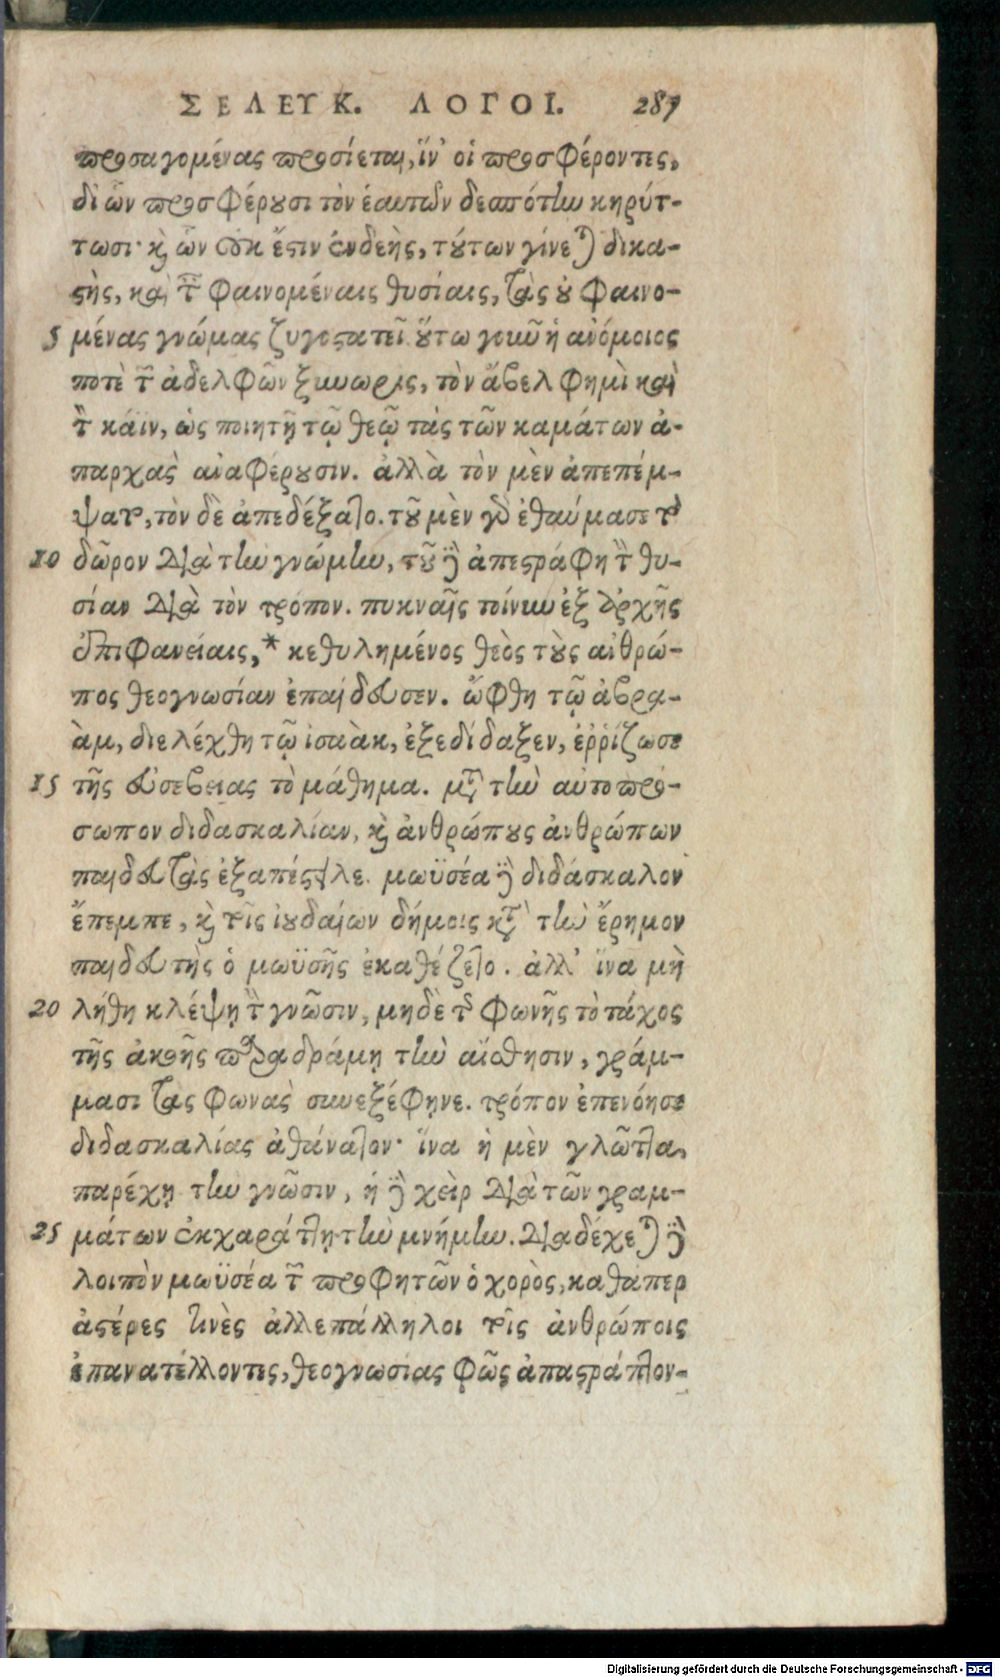 ΣΕΛΕΥΚ. ΛΟΓΟΙ. 287
προσαγομένας προσίεται, ἵν' οἱ προσφέροντες,
δι ὧν προσφέρουσι τὸν ἑαυτῶν δεσπότην κηρύτ-
τωσι· καὶ ὧν οὐκ ἔστιν ἐνδεὴς, τούτων γίνεται δικα-
στὴς, καὶ τῶν φαινομέναις θυσίαις, τὰς οὐ φαινο-
5 μένας γνώμας ζυγοστατεῖ. οὕτω γοιοῦ ἡ ἀνόμοιος
ποτὲ τῶν ἀδελφῶν ξυνωρὶς, τὸν ἄβελ φημὶ καὶ
τὸν κάϊν, ὡς ποιητῇ τῷ θεῷ τὰς τῶν καμάτων ἀ-
παρχὰς ἀναφέρουσιν. ἀλλὰ τὸν μὲν ἀπεπέμ-
ψατο, τὸν δὲ ἀπεδέξατο. τοῦ μὲν γὰρ ἐθαύμασε τὸ
10 δῶρον διὰ τὴν γνώμην, τοῦ δὲ ἀπεστράφη τὴν θυ-
σίαν διὰ τὸν τρόπον. πυκναῖς τοίνυν ἐξ ἀρχῆς
ἐπιφανείαις,* κεθυλημένος θεὸς τοὺς ἀνθρώ-
πος θεογνωσίαν ἐπαίδευσεν. ὤφθη τῷ ἀβρα-
ὰμ, διελέχθη τῷ ἰσαὰκ, ἐξεδίδαξεν, ἐῤῥίζωσε
15 τῆς εὐσεβειας τὸ μάθημα. μετὰ τὴν αὐτοπρό-
σωπον διδασκαλίαν, καὶ ἀνθρώπους ἀνθρώπων
παιδευτὰς ἐξαπέστειλε. μωϋσέα δὲ διδάσκαλον
ἔπεμπε, καὶ τοῖς ἰουδαίων δήμοις κατὰ τὴν ἔρημον
παιδευτὴς ὁ μωϋσῆς ἐκαθέζετο. ἀλλ' ἵνα μὴ
20 λήθη κλέψῃ τὴν γνῶσιν, μηδὲ τῆς φωνῆς τὸ τάχος
τῆς ἀκοῆς παραδράμῃ τὴν αἴσθησιν, γράμ-
μασι τὰς φωνὰς συνεξέφηνε. τρόπον ἐπενόησε
διδασκαλίας ἀθάνατον· ἵνα ἡ μὲν γλῶττα,
παρέχῃ τὴν γνῶσιν, ἡ δὲ χεὶρ διὰ τῶν γραμ-
25 μάτων ἐκχαράττῃ τὴν μνήμην. διαδέχεται δὲ
λοιπὸν μωϋσέα τῶν προφητῶν ὁ χορὸς, καθάπερ
ἀστέρες τινὲς ἀλλεπάλληλοι τοῖς ἀνθρώποις
ἐπανατέλλοντες, θεογνωσίας φῶς ἀπαστράπτον-
Digitalisierung gefördert durch die Deutsche Forschungsgemeinschaft - DFG